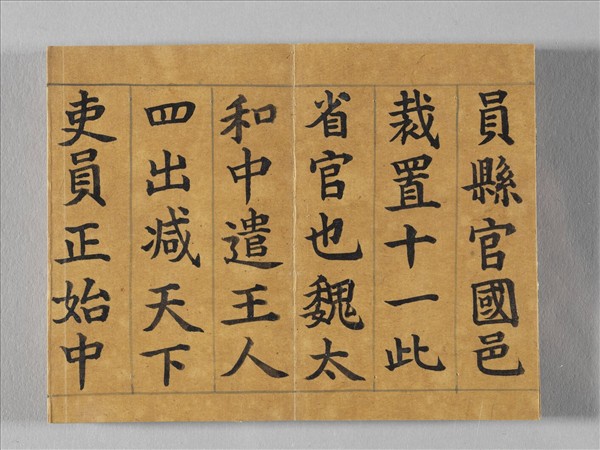 員縣官國邑
裁置十一此
省官也魏太
和中遣王人
四出减天下
吏員正始中